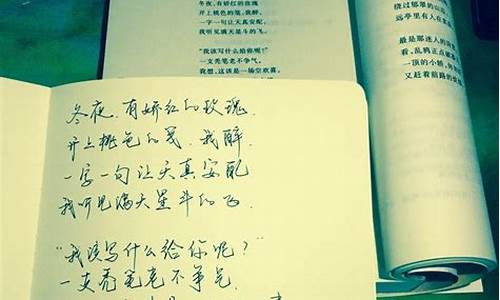 冬夜,有娇红的玫瑰
开上桃色的笺,我醉,
一字一句让天真安配,
我听见满天星斗的飞。
“我该写什么给你呢?”
一支秃笔老不争气。
我想,这该是一场空欢喜。
绕过郁翠的山
远亭里有人在
最是那迷人的
看,乱鸦正点破
一顶的小轿,
又赶着前路的
冬夜,有娇红的玫瑰,
开上桃色的笺.我醉.
一字一句让天真安配
我听见满天星斗的飞.
“我该写什么给你呢?”
一支秃笔老不争气.